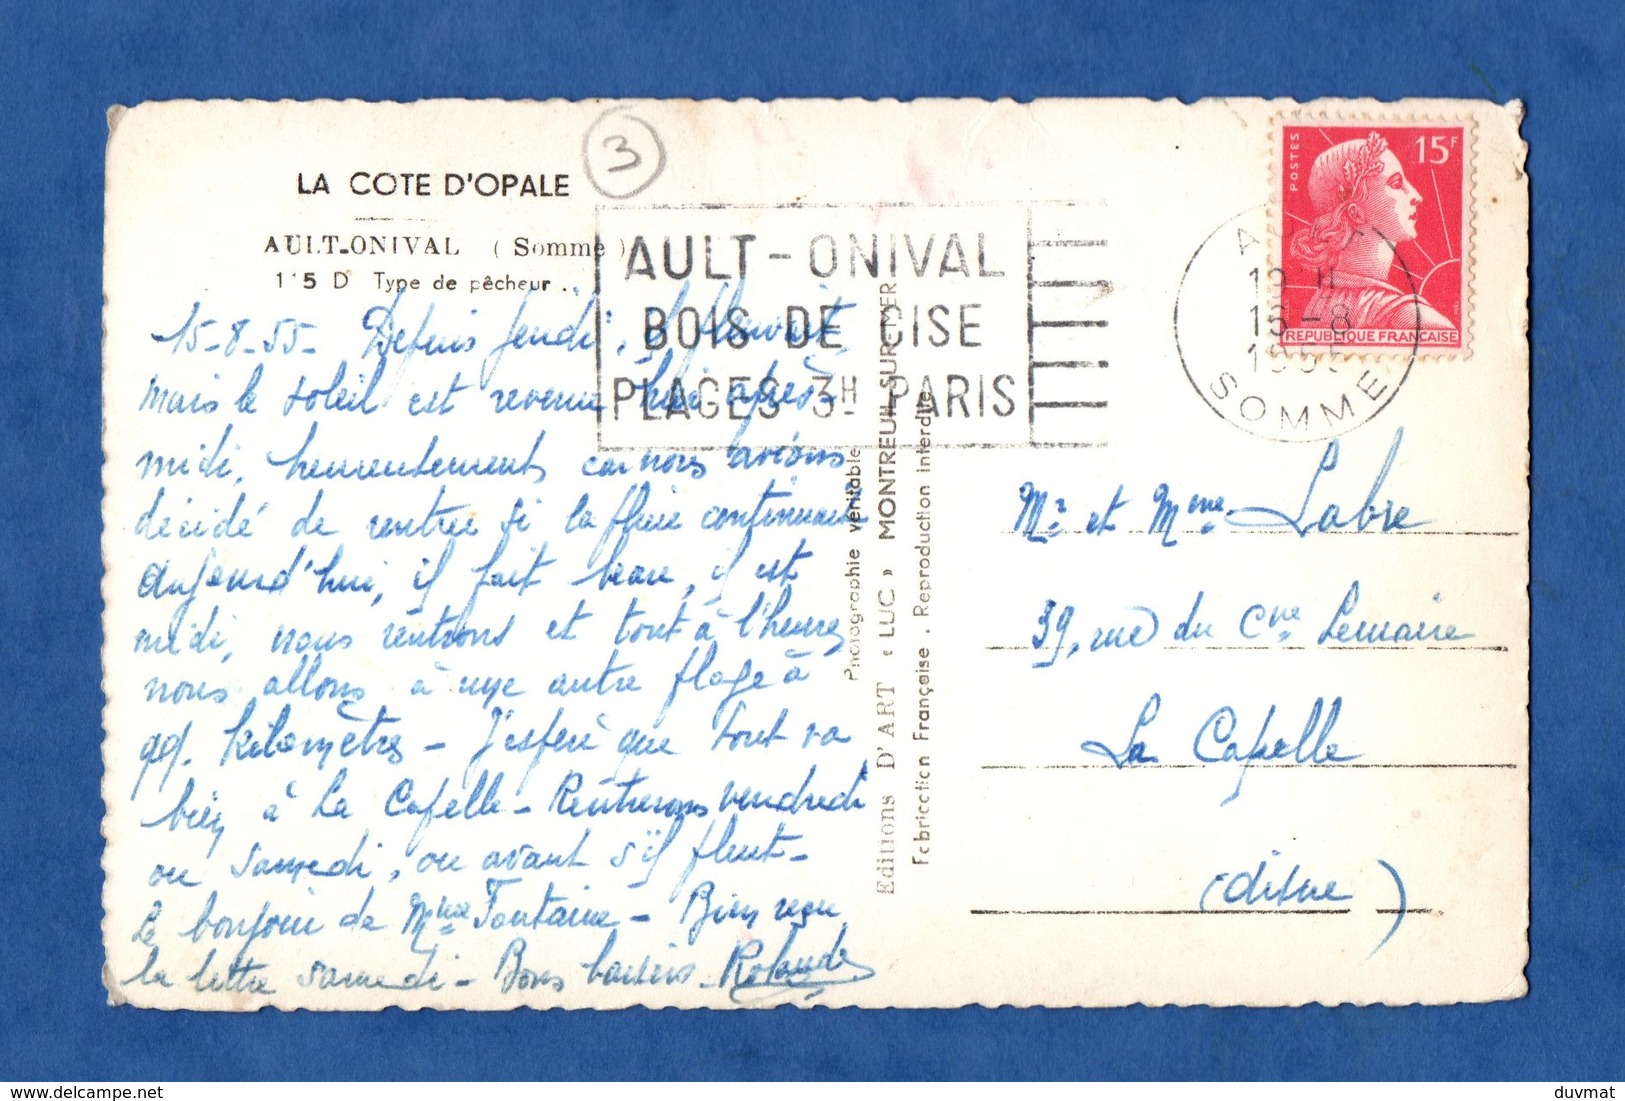 LA COTE D'OPALE
3
AULT-ONIVAL (Somme)
115 D Type de pêcheur.
AULT-ONIVAL
BOIS DE CISE
PLAGES 3H PARIS
POSTES
15F
REPUBLIQUE FRANÇAISE
AULT
19 H
16-8
1955
SOMME
15-8-55- Depuis Jeudi, il pleuvait
mais le soleil est revenu hier après-
midi, heureusement car nous avions
décidé de rentrer si la pluie continuait
aujourd'hui, il fait beau, il est
midi, nous rentrons et tout à l'heure
nous allons à une autre plage à
qq. kilomètres - J'espère que tout va
bien à La Capelle - Rentrerons vendredi
ou samedi, ou avant s'il pleut -
Le bonjour de Mme Fontaine - Bien reçu
la lettre samedi - Bons baisers - Rolande
Photographie véritable
Editions D'ART « LUC » MONTREUIL-SUR-MER
Fabrication Française. Reproduction interdite
Mr et Mme Labre
39, rue du Cne Lemaire
La Capelle
(Aisne)
duvmat